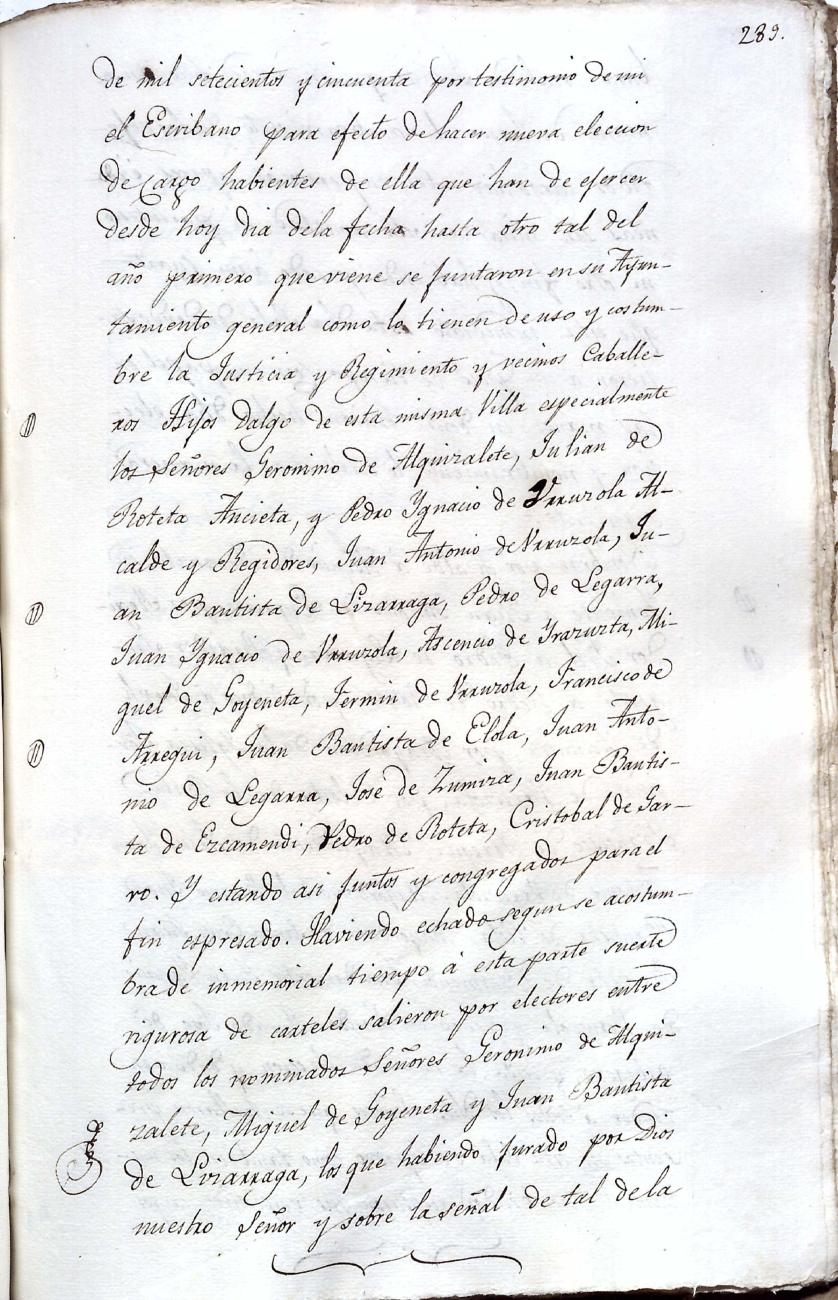 289.
de mil setecientos y cincuenta por testimonio de mi
el Escribano para efecto de hacer nueva eleccion
de Cargo habientes de ella que han de ejercer
desde hoy dia dela fecha hasta otro tal del
año primero que viene se juntaron en su Ayun-
tamiento general como lo tienen de uso y costum-
bre la Justicia y Regimiento y vecinos Caballe-
ros Hijos Dalgo de esta misma Villa especialmente
los Señores Geronimo de Alquizalete, Julian de
Roteta Ancieta, y Pedro Ygnacio de Vrruzola Al-
calde y Regidores, Juan Antonio de Vrruzola, Ju-
an Bautista de Lizarraga, Pedro de Legarra,
Juan Ygnacio de Vrruzola, Ascencio de Yrazuzta, Mi-
guel de Goyeneta, Fermin de Vrruzola, Francisco de
Arregui, Juan Bautista de Elola, Juan Anto-
nio de Legarra, José de Zumiza, Juan Bautis-
ta de Ezcamendi, Pedro de Roteta, Cristobal de Gar-
ro. Y estando asi juntos y congregados para el
fin espresado. Haviendo echado segun se acostum-
bra de inmemorial tiempo á esta parte suerte
rigurosa de carteles salieron por electores entre
todos los nominados Señores Geronimo de Alqui-
zalete, Miguel de Goyeneta y Juan Bautista
de Lizarraga, los que habiendo jurado por Dios
nuestro Señor y sobre la señal de tal de la